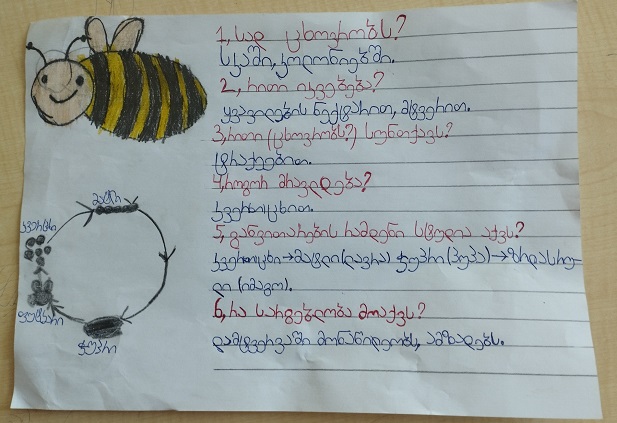 1, სად ცხოვრობს?
სკაში, კოლონიებში.
2, რითი იკვებება?
ყვავილების ნექტარით, მტვერით.
3, რითი (ცხოვრობს?) სუნთქავს?
ტრაქეებით.
4, როგორ მრავლდება?
კვერცხით.
5, განვითარების რამდენი სტადია აქვს?
კვერცხი→მატლი (ლავრა) ჭუპრი (პუპა)→ზრდასრუ-
ლი (იმაგო).
6, რა სარგებლობა მოაქვს?
დამტვერვაში მონაწილეობს, ამზადებს.
მატლი
კვერცხი
ფუტკარი
ჭუპრი